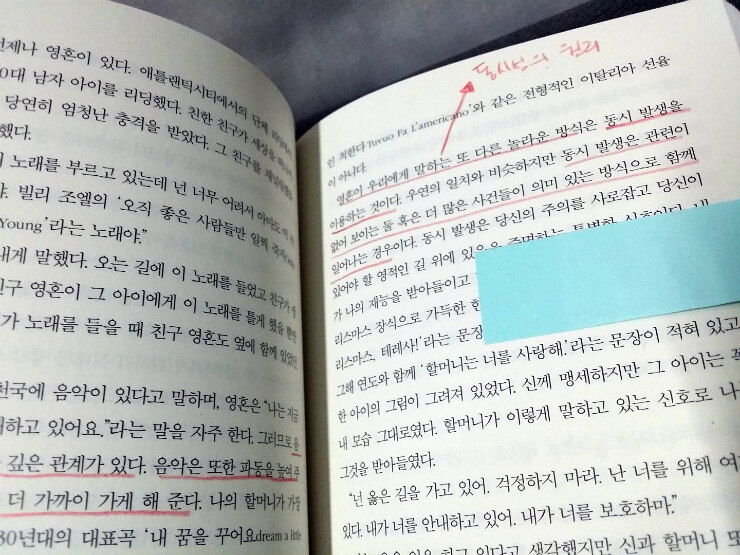 언제나 영혼이 있다. 애틀랜틱시티에서의 단체
0대 남자 아이를 리딩했다. 친한 친구가 세상을
당연히 엄청난 충격을 받았다. 그 친구를
했다.
노래를 부르고 있는데 넌 너무 어려서 아마도 이
야. 빌리 조엘의 ‘오직 좋은 사람들만 일찍 죽지Only
Young’라는 노래야.”
내게 말했다. 오는 길에 이 노래를 들었고 친구가
친구 영혼이 그 아이에게 이 노래를 틀게 했을 뿐만
가 노래를 들을 때 친구 영혼도 옆에 함께 있었던
천국에 음악이 있다고 말하며, 영혼은 “나는 지금
하고 있어요.”라는 말을 자주 한다. 그러므로 음
깊은 관계가 있다. 음악은 또한 파동을 높여 주
더 가까이 가게 해 준다. 나의 할머니가 가장
30년대의 대표곡 ‘내 꿈을 꾸어요dream a little
동시성의 원리
인 척한다Tuvuo Fa L’americano’와 같은 전형적인 이탈리아 선율
이 아니다.
영혼이 우리에게 말하는 또 다른 놀라운 방식은 동시 발생을
이용하는 것이다. 우연의 일치와 비슷하지만 동시 발생은 관련이
없어 보이는 둘 혹은 더 많은 사건들이 의미 있는 방식으로 함께
일어나는 경우이다. 동시 발생은 당신의 주의를 사로잡고 당신이
있어야 할 영적인 길 위에 있음을 증명하는 특별한 신호이다. 내
가 나의 재능을 받아들이고
리스마스 장식으로 가득한 한
리스마스, 테레사!’라는 문장
그해 연도와 함께 ‘할머니는 너를 사랑해.’라는 문장이 적혀 있고
한 아이의 그림이 그려져 있었다. 신께 맹세하지만 그 아이는 꼭
내 모습 그대로였다. 할머니가 이렇게 말하고 있는 신호로 나
그것을 받아들였다.
“넌 옳은 길을 가고 있어. 걱정하지 마라. 난 너를 위해 여
있다. 내가 너를 안내하고 있어. 내가 너를 보호하마.”
하고 있다고 생각했지만 신과 할머니 또